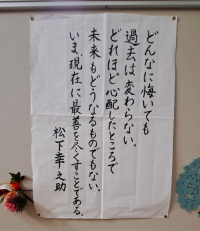 どんなに悔いても
過去は変わらない。
どれほど心配したところで
未来もどうなるものでもない。
いま、現在に最善を尽くすことである。
松下幸之助